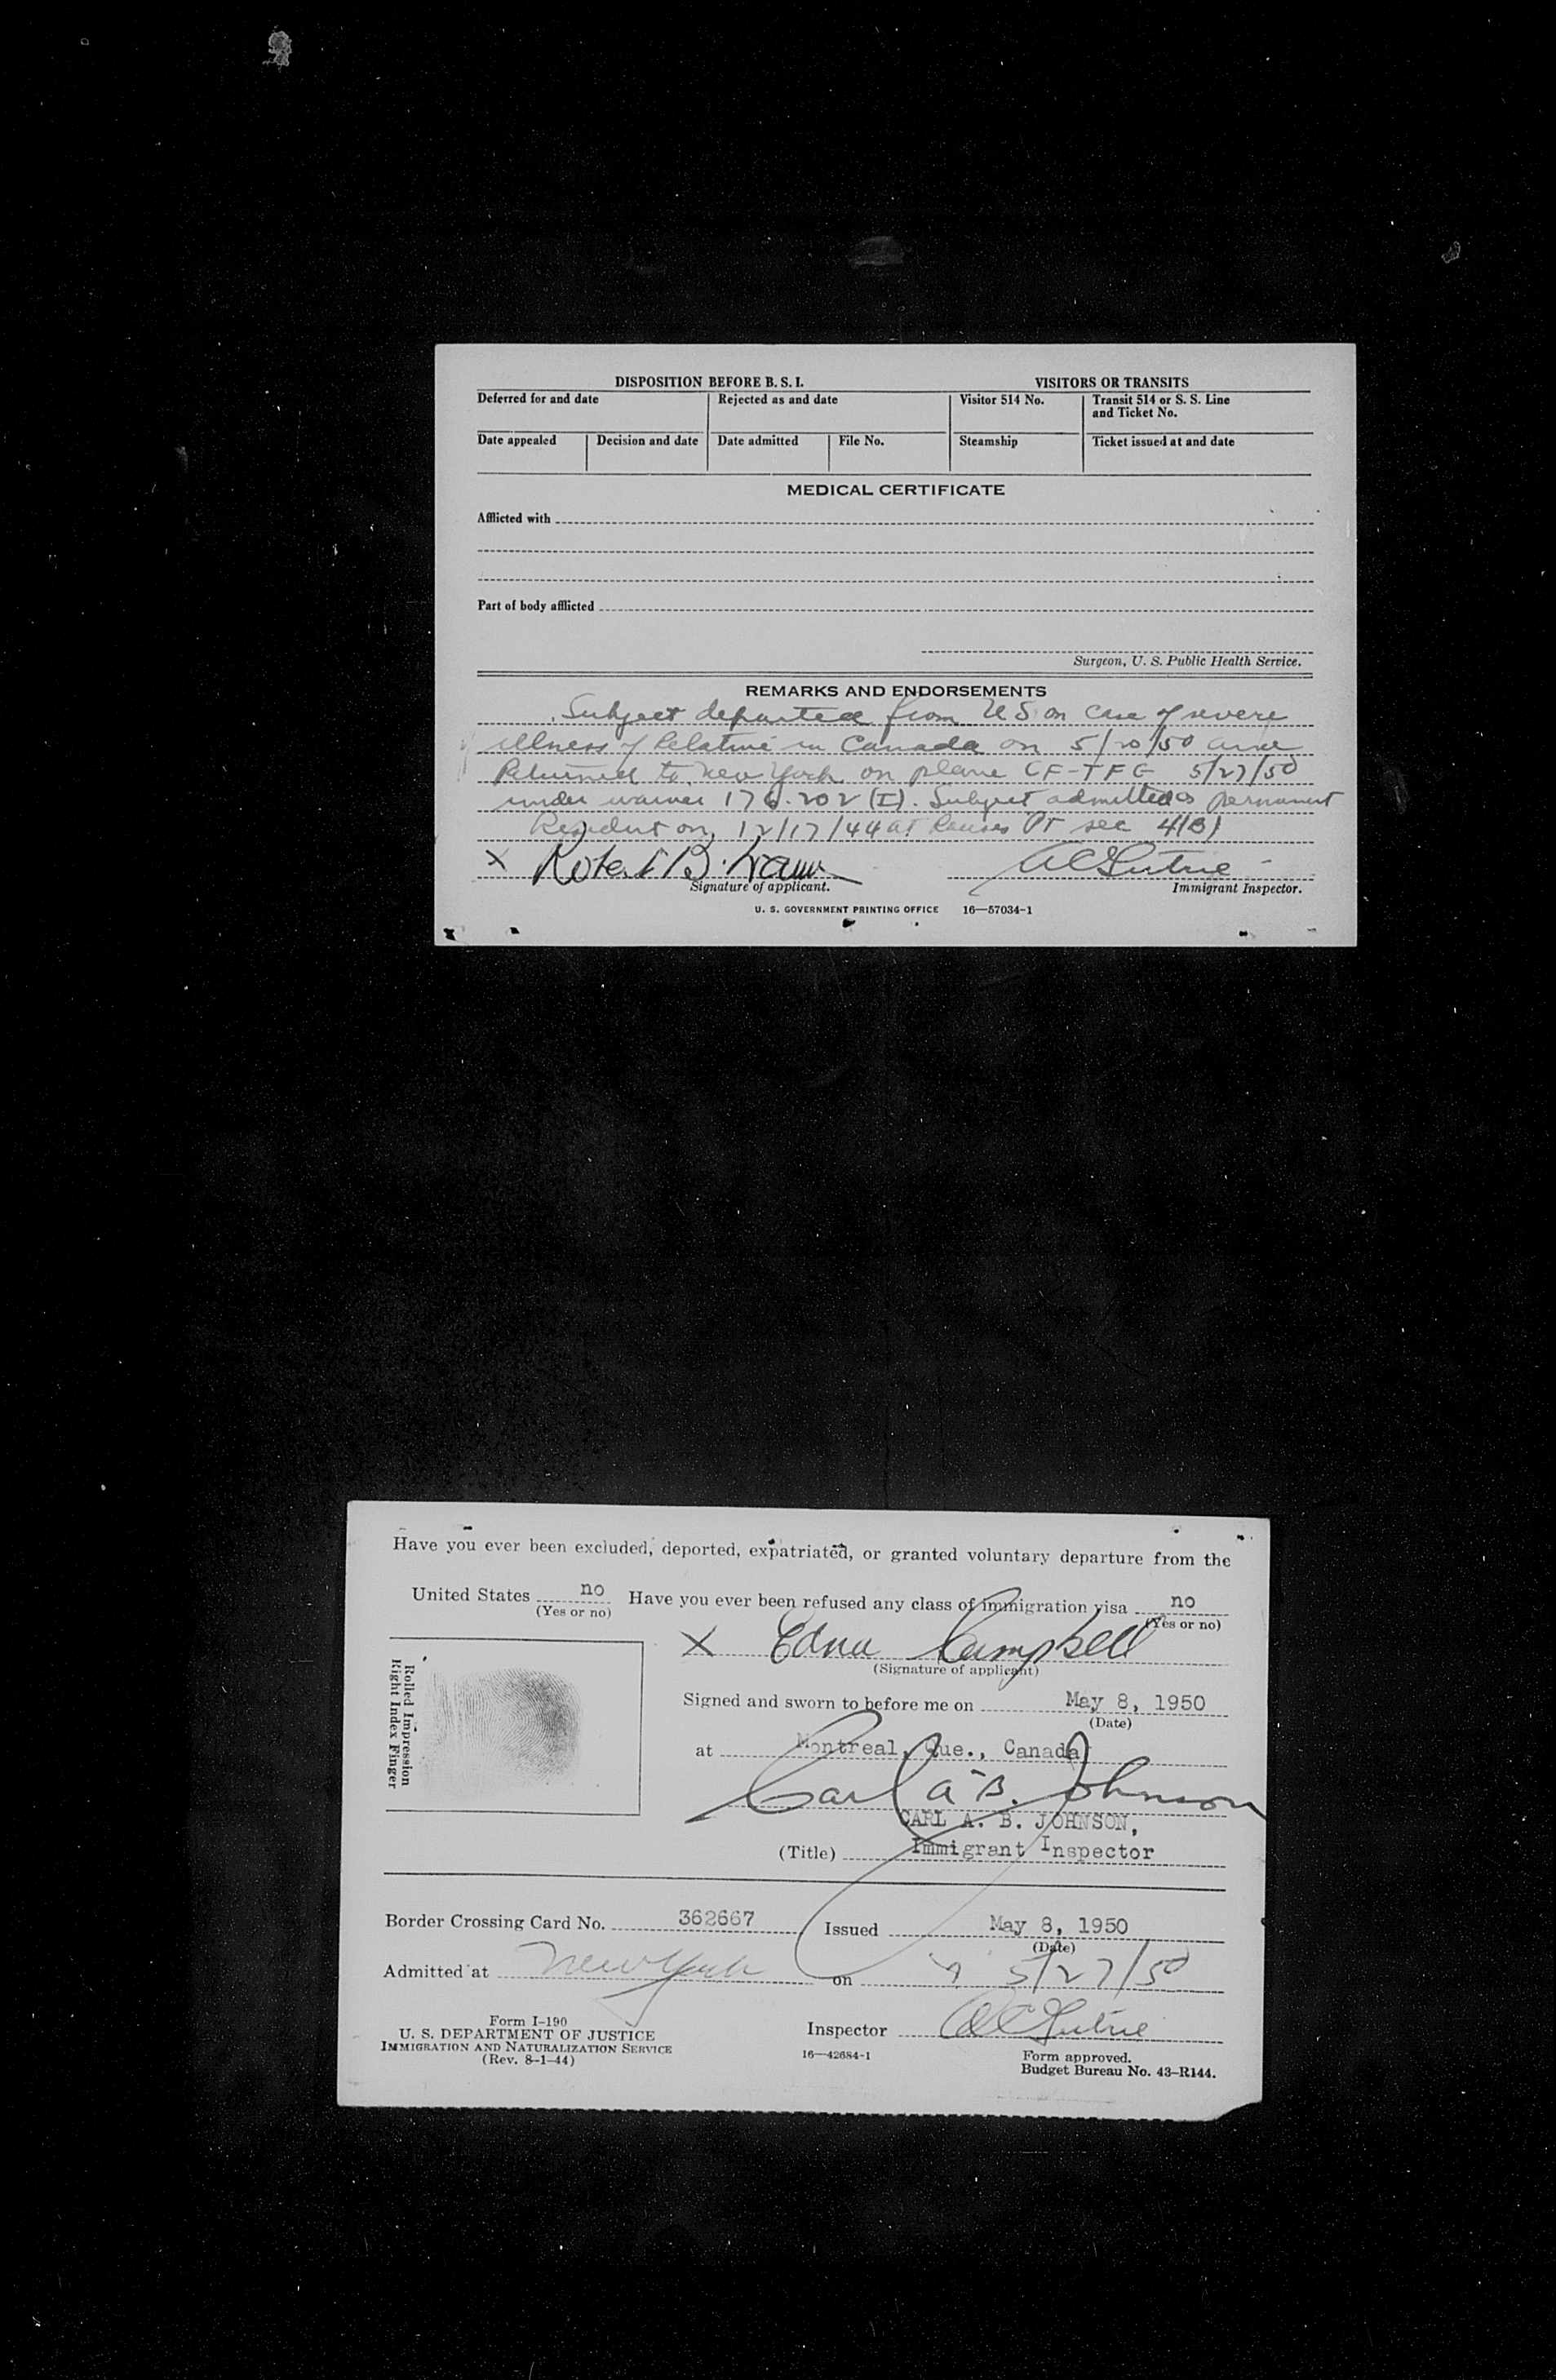 DISPOSITION BEFORE B. S. I.
VISITORS OR TRANSITS
Deferred for and date
Rejected as and date
Visitor 514 No.
Transit 514 or S. S. Line
and Ticket No.
Date appealed
Decision and date
Date admitted
File No.
Steamship
Ticket issued at and date
MEDICAL CERTIFICATE
Afflicted with
Part of body afflicted
Surgeon, U. S. Public Health Service.
REMARKS AND ENDORSEMENTS
Subject departed from US on case of severe
illness of Relative in Canada on 5/20/50 and
Returned to New York on plane CF-TFG 5/27/50
under waiver 176.202 (I). Subject admitted as permanent
Resident on 12/17/44 at Rouses Pt sec 4(B)
X Robert B.
Signature of applicant.
Immigrant Inspector.
U. S. GOVERNMENT PRINTING OFFICE 16—57034-1
Have you ever been excluded, deported, expatriated, or granted voluntary departure from the
United States no Have you ever been refused any class of immigration visa no
(Yes or no)
(Yes or no)
X Edna Campbell
(Signature of applicant)
Signed and sworn to before me on May 8, 1950
(Date)
at Montreal, Que., Canada
Carl A. B. Johnson
CARL A. B. JOHNSON,
(Title) Immigrant Inspector
Rolled Impression
Right Index Finger
Border Crossing Card No. 362667 Issued May 8, 1950
(Date)
Admitted at New York on 5/27/50
Form I-190
U. S. DEPARTMENT OF JUSTICE
IMMIGRATION AND NATURALIZATION SERVICE
(Rev. 8-1-44)
Inspector
16—42684-1
Form approved.
Budget Bureau No. 43-R144.